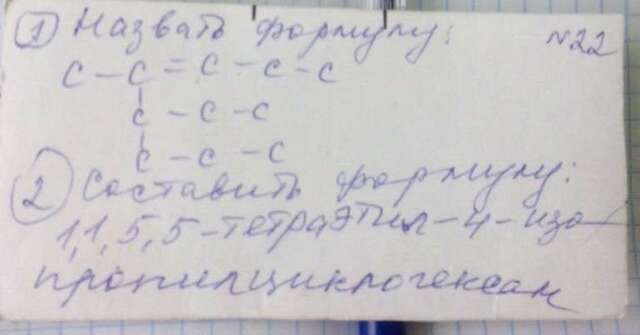 1 Назвать формулу: №22
С - С = С - С - С
С - С - С
С - С - С
2 Составить формулу:
1,1,5,5-тетраэтил-4-изо
пропилциклогексан